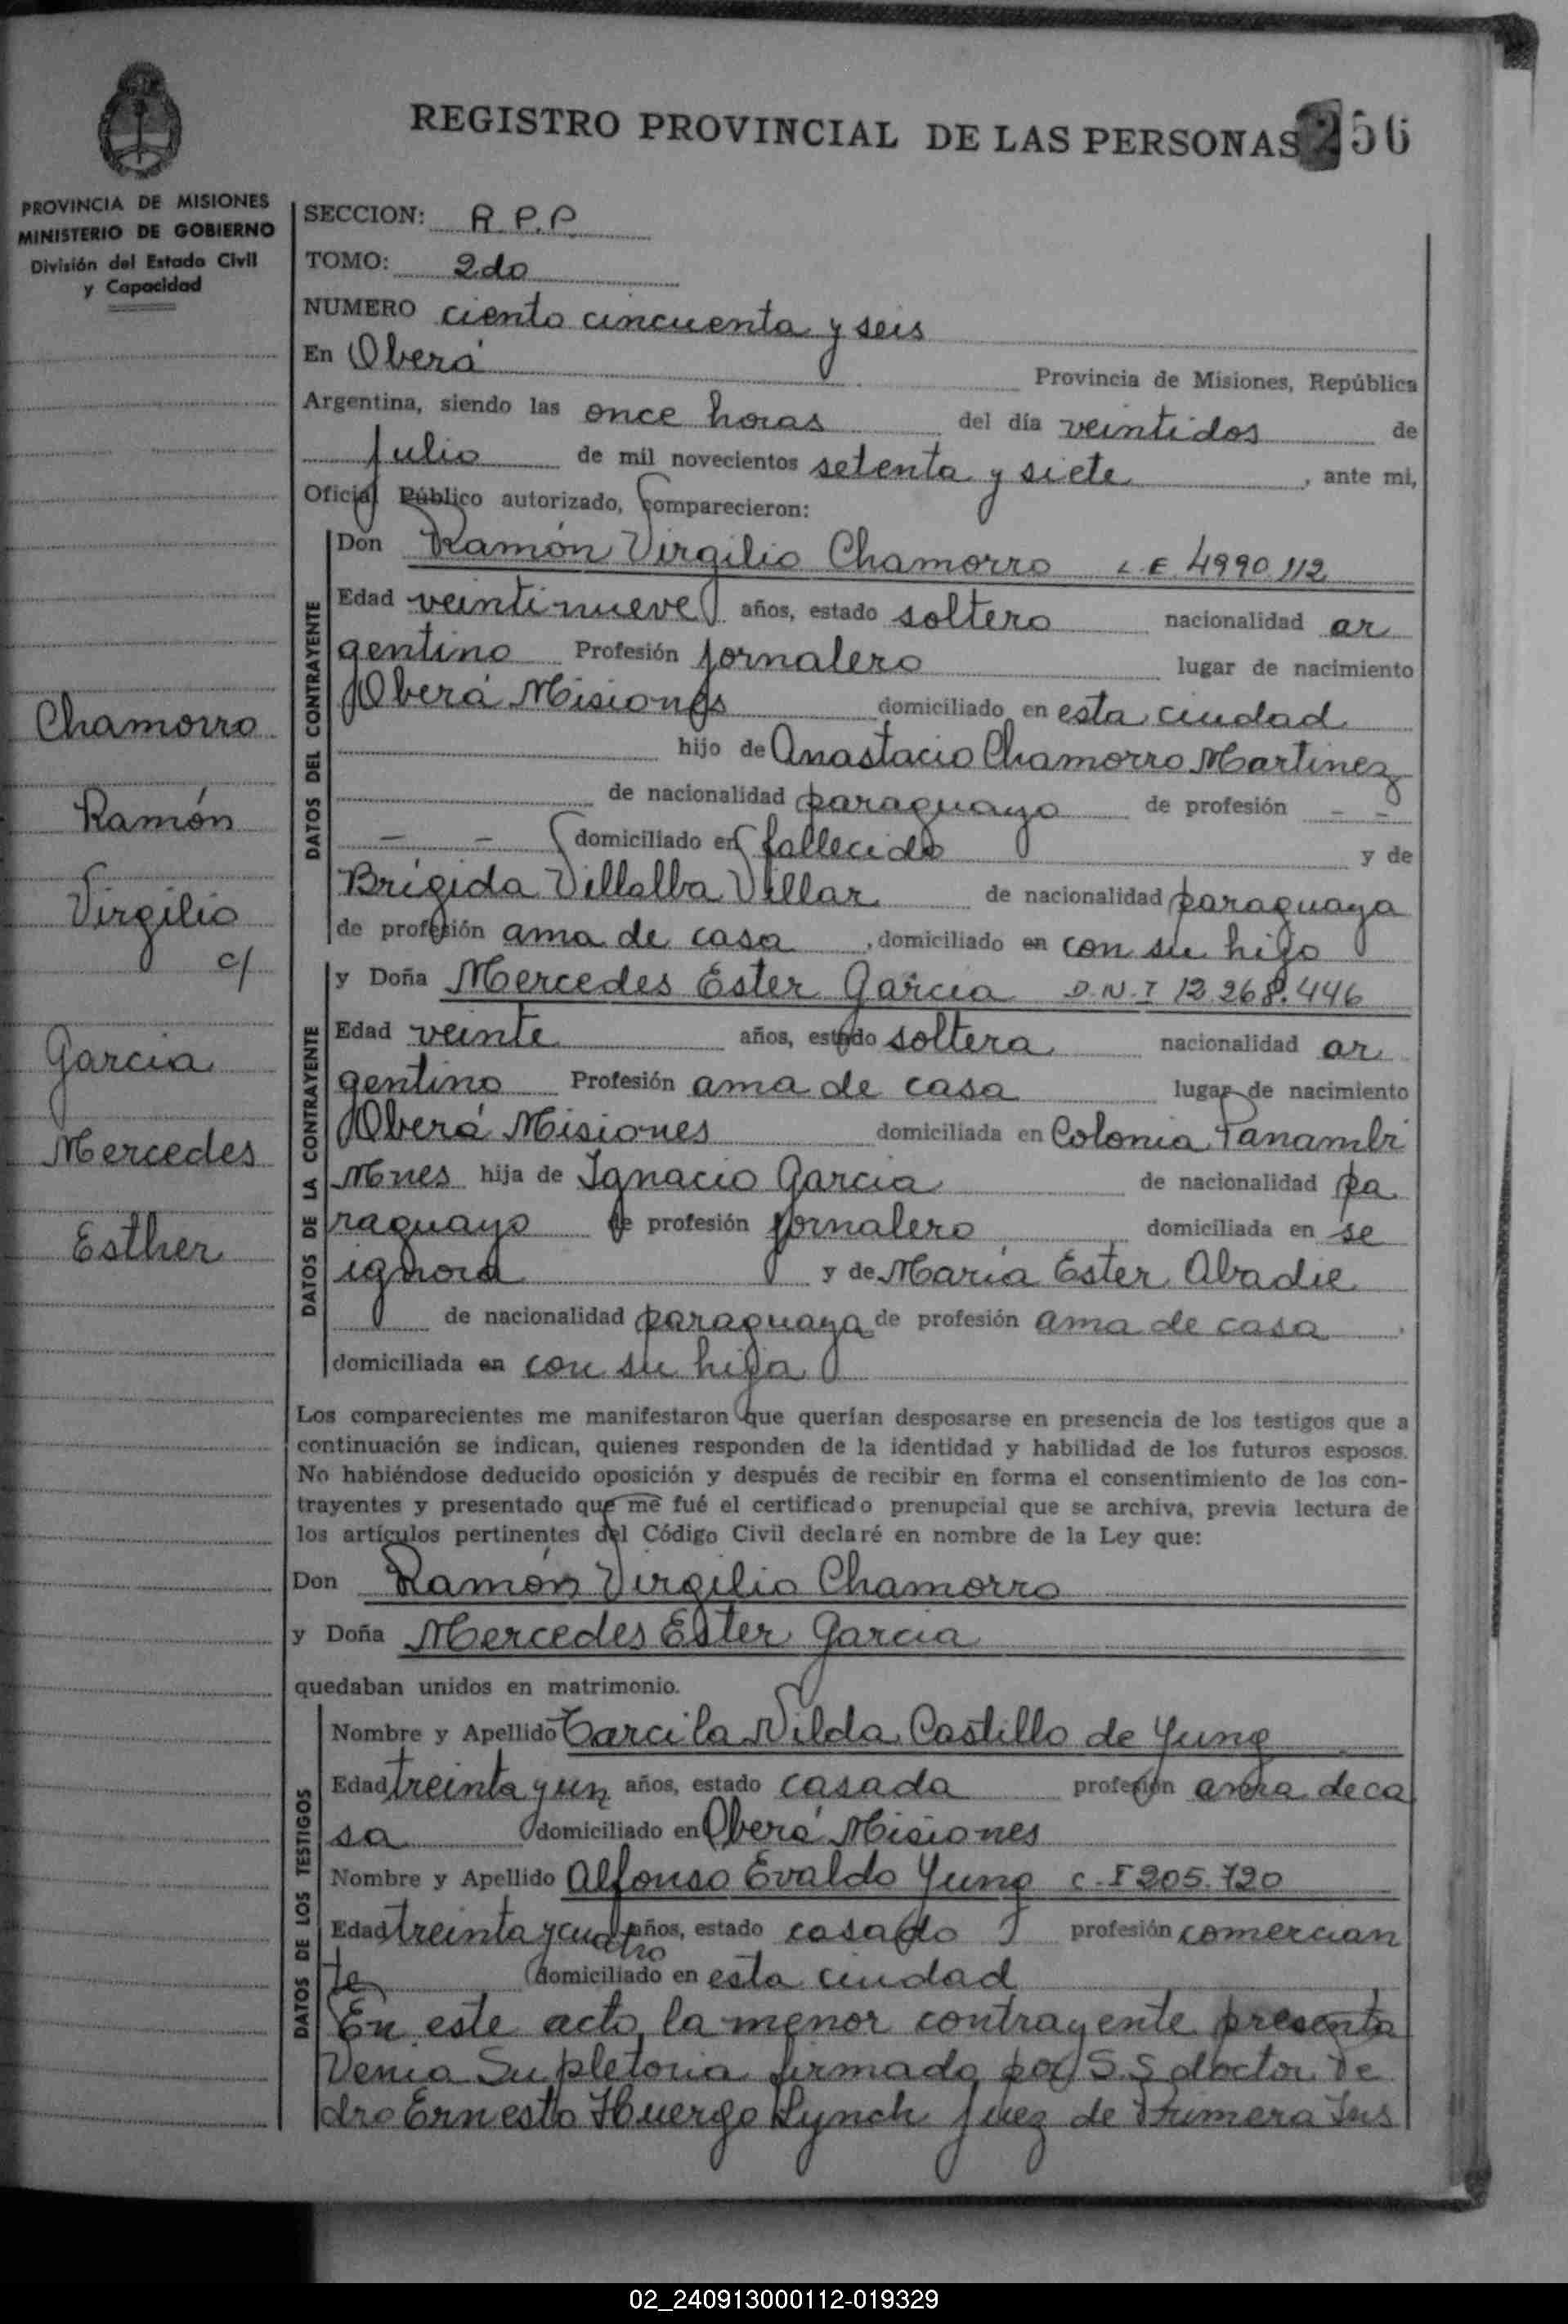 REGISTRO PROVINCIAL DE LAS PERSONAS 256
PROVINCIA DE MISIONES
MINISTERIO DE GOBIERNO
División del Estado Civil
y Capacidad
Chamorro
Ramón
Virgilio
c/
Garcia
Mercedes
Esther
SECCION: R.P.P.
TOMO: 2do
NUMERO ciento cincuenta y seis
En Oberá Provincia de Misiones, República
Argentina, siendo las once horas del día veintidos de
julio de mil novecientos setenta y siete, ante mi,
Oficial Público autorizado, comparecieron:
DATOS DEL CONTRAYENTE
Don Ramón Virgilio Chamorro L.E. 4990.112
Edad veintinueve años, estado soltero nacionalidad ar
gentino Profesión jornalero lugar de nacimiento
Oberá Misiones domiciliado en esta ciudad
hijo de Anastacio Chamorro Martinez
de nacionalidad paraguayo de profesión - -
- - domiciliado en fallecido y de
Brígida Villalba Villar de nacionalidad paraguaya
de profesión ama de casa, domiciliado en con su hijo
DATOS DE LA CONTRAYENTE
y Doña Mercedes Ester Garcia D.N.I 12.268.446
Edad veinte años, estado soltera nacionalidad ar
gentino Profesión ama de casa lugar de nacimiento
Oberá Misiones domiciliada en Colonia Panambí
Mnes hija de Ignacio Garcia de nacionalidad pa
raguayo de profesión jornalero domiciliada en se
ignora y de María Ester Abadie
de nacionalidad paraguaya de profesión ama de casa.
domiciliada en con su hija
Los comparecientes me manifestaron que querían desposarse en presencia de los testigos que a
continuación se indican, quienes responden de la identidad y habilidad de los futuros esposos.
No habiéndose deducido oposición y después de recibir en forma el consentimiento de los con-
trayentes y presentado que me fué el certificado prenupcial que se archiva, previa lectura de
los artículos pertinentes del Código Civil declaré en nombre de la Ley que:
Don Ramón Virgilio Chamorro
y Doña Mercedes Ester Garcia
quedaban unidos en matrimonio.
DATOS DE LOS TESTIGOS
Nombre y Apellido Tarcila Nilda Castillo de Yung
Edad treinta y un años, estado casada profesión ama de ca
sa domiciliado en Oberá Misiones
Nombre y Apellido Alfonso Evaldo Yung C.I 205.720
Edad treinta y cuatro años, estado casado profesión comercian
te domiciliado en esta ciudad
En este acto, la menor contrayente presenta
Venia Supletoria firmada por S.S doctor Pe
dro Ernesto Huergo Lynch juez de Primera Ins
02_240913000112-019329